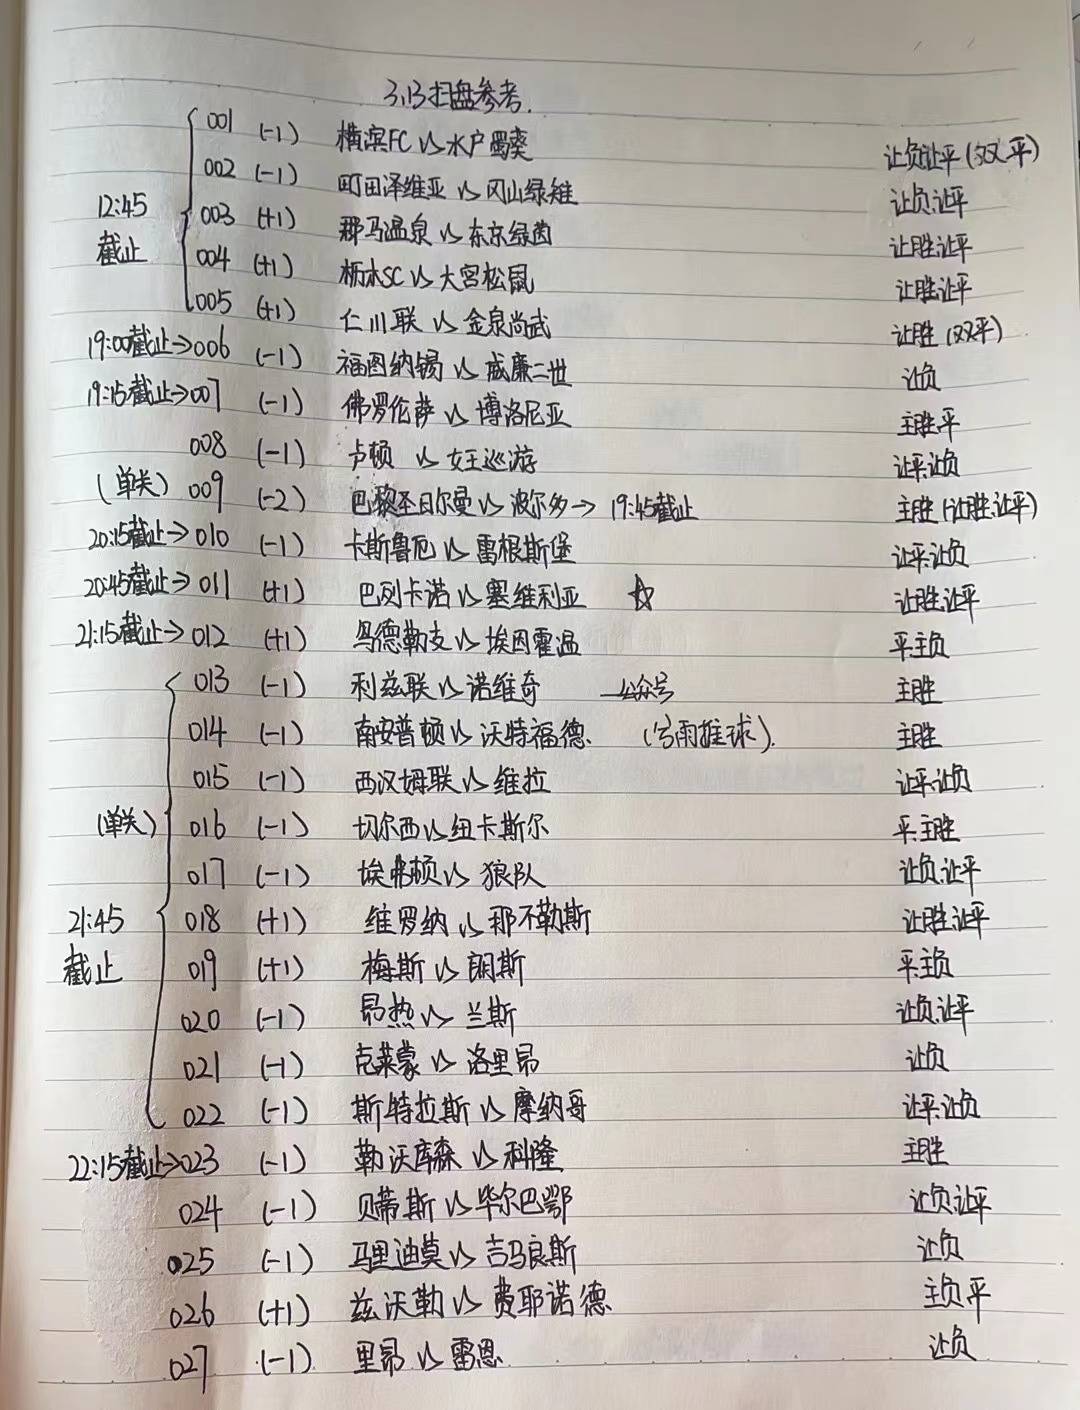 3.13扫盘参考.
001 (-1) 横滨FC VS 水户蜀葵 让负让平(双平)
002 (-1) 町田泽维亚 VS 冈山绿雉 让负.让平
12:45截止 003 (+1) 群马温泉 VS 东京绿茵 让胜让平
004 (+1) 栃木SC VS 大宫松鼠 让胜让平
005 (+1) 仁川联 VS 金泉尚武 让胜(双平)
19:00截止→006 (-1) 福图纳锡 VS 威廉二世 让负
19:15截止→007 (-1) 佛罗伦萨 VS 博洛尼亚 主胜.平
008 (-1) 卢顿 VS 女王巡游 让平.让负
(单关) 009 (-2) 巴黎圣日尔曼 VS 波尔多→19:45截止 主胜(让胜.让平)
20:15截止→010 (-1) 卡斯鲁厄 VS 雷根斯堡 让平.让负
20:45截止→011 (+1) 巴列卡诺 VS 塞维利亚 ☆ 让胜.让平
21:15截止→012 (+1) 乌德勒支 VS 埃因霍温 平.主负
013 (-1) 利兹联 VS 诺维奇 公众号 主胜
014 (-1) 南安普顿 VS 沃特福德. (雨推球). 主胜
015 (-1) 西汉姆联 VS 维拉 让平.让负
(单关) 016 (-1) 切尔西 VS 纽卡斯尔 平.主胜
017 (-1) 埃弗顿 VS 狼队 让负.让平
21:45截止 018 (+1) 维罗纳 VS 那不勒斯 让胜.让平
019 (+1) 梅斯 VS 朗斯 平.主负
020 (-1) 昂热 VS 兰斯 让负.让平
021 (-1) 克莱蒙 VS 洛里昂 让负
022 (-1) 斯特拉斯 VS 摩纳哥 让平.让负
22:15截止→023 (-1) 勒沃库森 VS 科隆 主胜
024 (-1) 贝蒂斯 VS 毕尔巴鄂 让负.让平
025 (-1) 马里迪莫 VS 吉马良斯 让负
026 (+1) 兹沃勒 VS 费耶诺德 主负.平
027 (-1) 里昂 VS 雷恩 让负